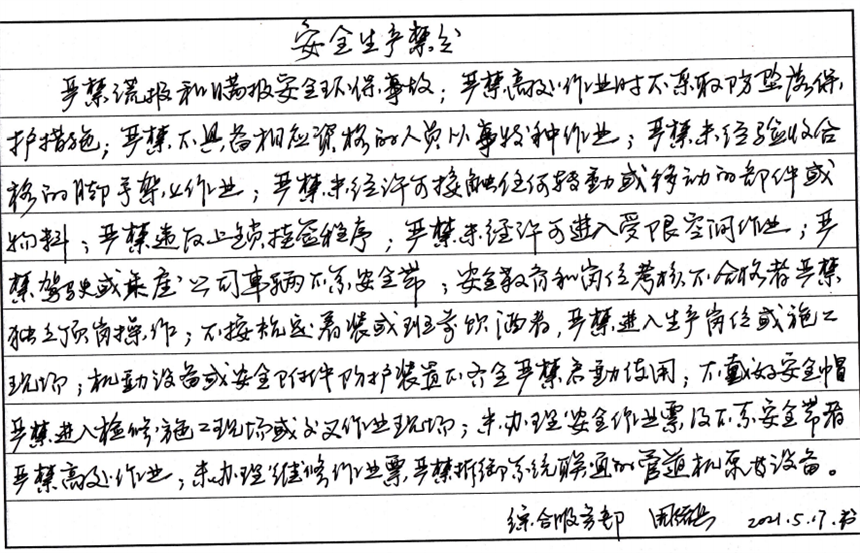 安全生产禁令
严禁谎报和瞒报安全环保事故；严禁高处作业时不采取防坠落保
护措施；严禁不具备相应资格的人员从事特种作业；严禁未经验收合
格的脚手架上作业；严禁未经许可接触任何转動或移动的部件或
物料；严禁违反上锁挂签程序；严禁未经许可进入受限空间作业；严
禁驾驶或乘座公司车辆不系安全带；安全教育和岗位考核不合格者严禁
独立顶岗操作；不按规定着装或班前饮酒者，严禁进入生产岗位或施工
现场；机動设备或安全附件防护装置不齐全严禁启動使用；不戴好安全帽
严禁进入检修施工现场或交叉作业现场；未办理安全作业票及不系安全带者
严禁高处作业；未办理维修作业票严禁拆卸系统联通的管道机泵等设备。
综合服务部 2021.5.17.书